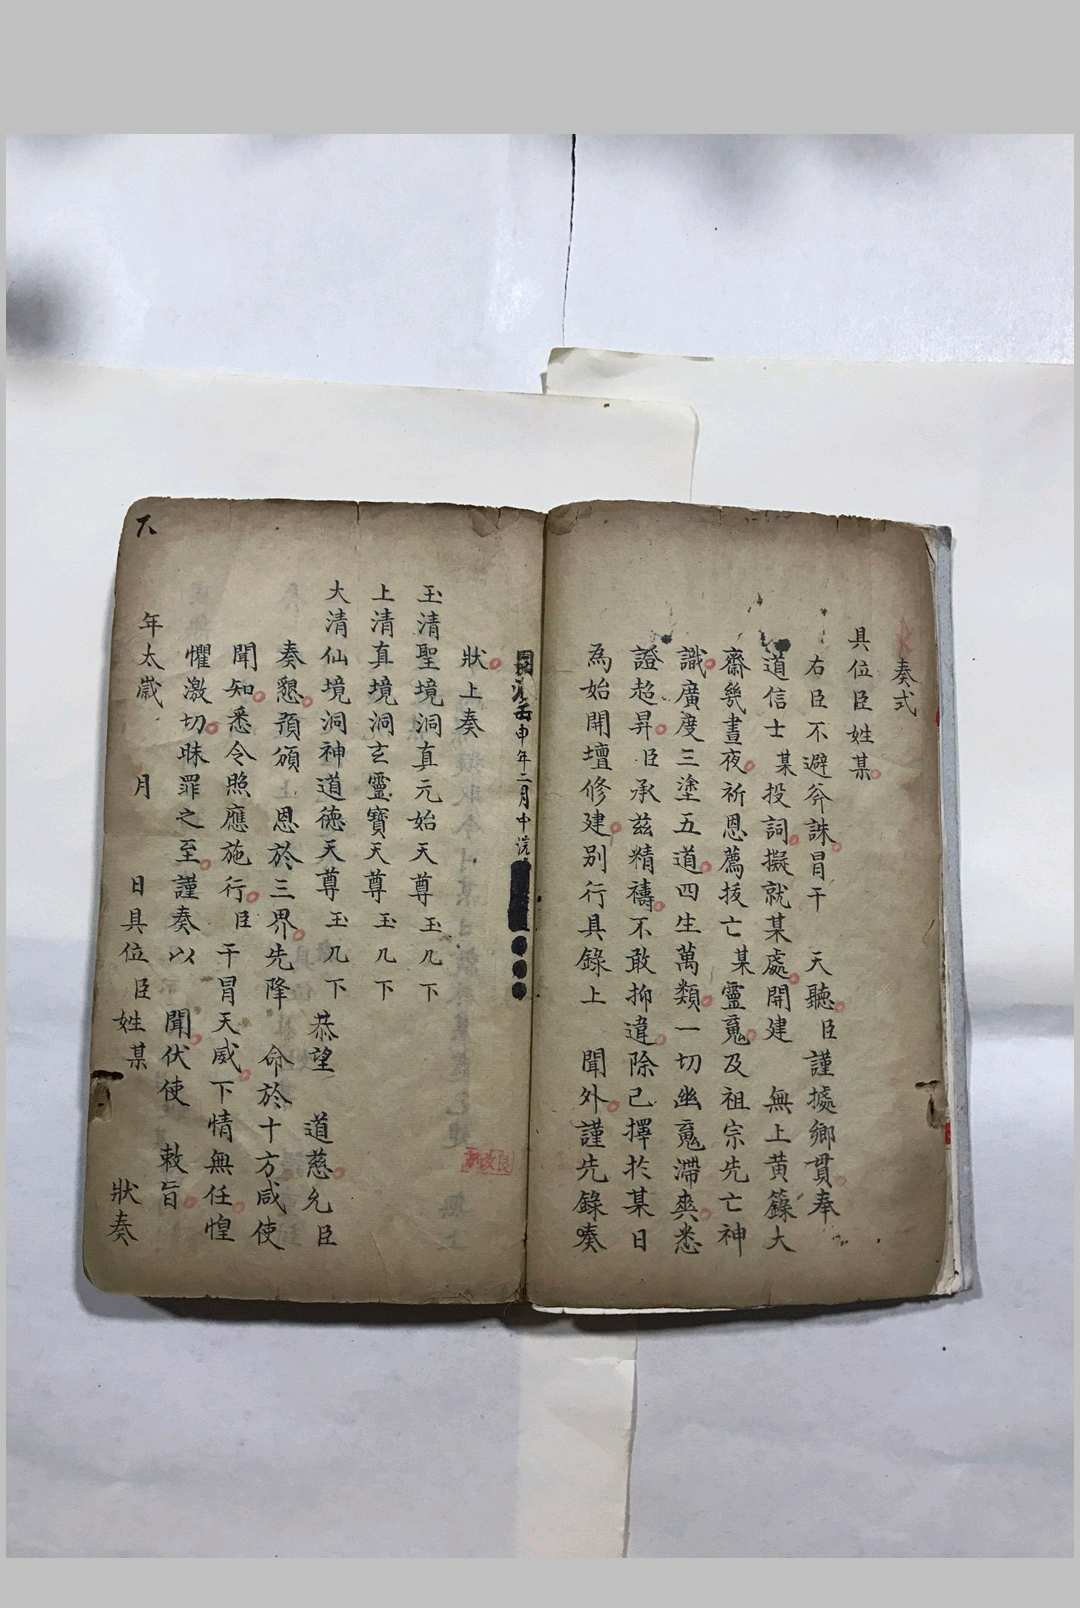 奏式
具位臣姓某
右臣不避斧誅冒干　天聽臣謹據鄉貫奉
道信士某投詞擬就某處開建　無上黃籙大
齋幾晝夜祈恩薦拔亡某靈魂及祖宗先亡神
識廣度三塗五道四生萬類一切幽魂滯爽悉
證超昇臣承茲精禱不敢抑違除已擇於某日
為始開壇修建別行具錄上　聞外謹先錄奏
壬申年二月中浣
狀上奏
玉清聖境洞真元始天尊玉几下
上清真境洞玄靈寶天尊玉几下
大清仙境洞神道德天尊玉几下　恭望　道慈允臣
奏懇預頒　恩於三界先降　命於十方咸使
聞知悉令照應施行臣干冒天威下情無任惶
懼激切昧罪之至謹奏以　聞伏使　敕旨
年太歲　月　日具位臣姓某　狀奏